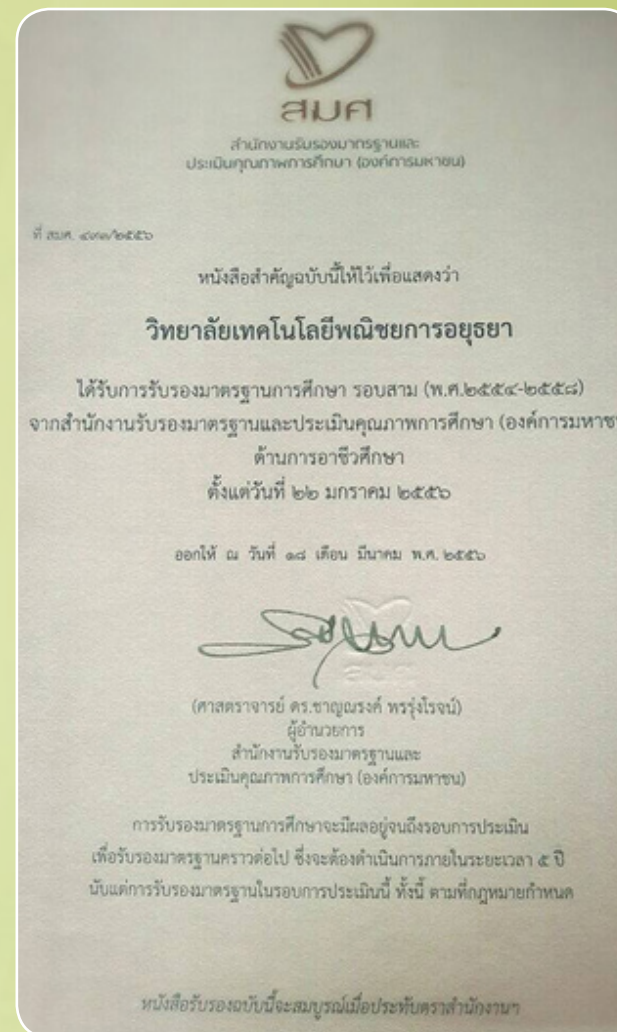 สมศ
สำนักงานรับรองมาตรฐานและ
ประเมินคุณภาพการศึกษา (องค์การมหาชน)
ที่ สมศ. /๒๕๕๖
หนังสือสำคัญฉบับนี้ให้ไว้เพื่อแสดงว่า
วิทยาลัยเทคโนโลยีพณิชยการอยุธยา
ได้รับการรับรองมาตรฐานการศึกษา รอบสาม (พ.ศ.๒๕๕๔-๒๕๕๘)
จากสำนักงานรับรองมาตรฐานและประเมินคุณภาพการศึกษา (องค์การมหาช
ด้านการอาชีวศึกษา
ตั้งแต่วันที่ ๒๒ มกราคม ๒๕๕๖
ออกให้ ณ วันที่ ๑๘ เดือน มีนาคม พ.ศ. ๒๕๕๖
(ศาสตราจารย์ ดร.ชาญณรงค์ พรรุ่งโรจน์)
ผู้อำนวยการ
สำนักงานรับรองมาตรฐานและ
ประเมินคุณภาพการศึกษา (องค์การมหาชน)
การรับรองมาตรฐานการศึกษาจะมีผลอยู่จนถึงรอบการประเมิน
เพื่อรับรองมาตรฐานคราวต่อไป ซึ่งจะต้องดำเนินการภายในระยะเวลา ๕ ปี
นับแต่การรับรองมาตรฐานในรอบการประเมินนี้ ทั้งนี้ ตามที่กฎหมายกำหนด
หนังสือรับรองฉบับนี้จะสมบูรณ์เมื่อประทับตราสำนักงานฯ